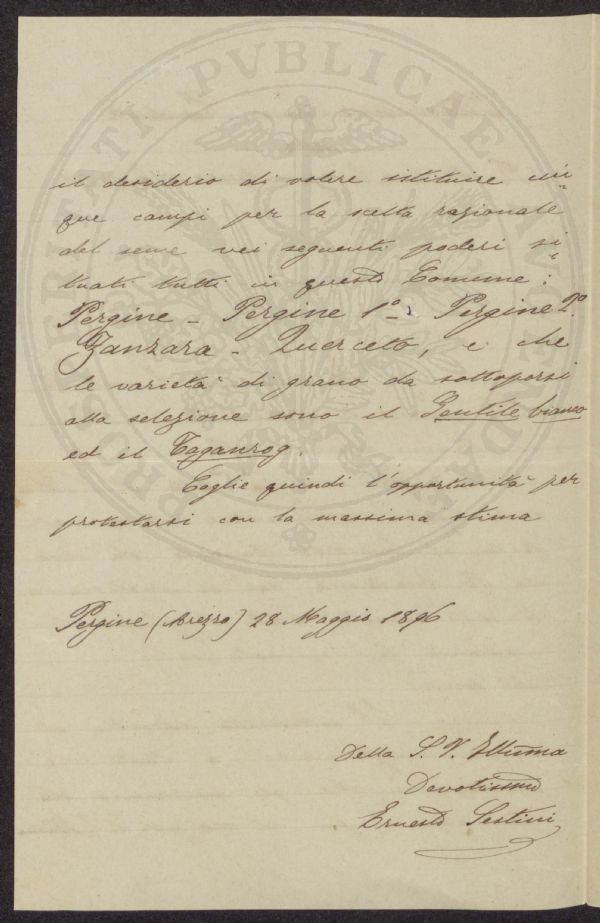 il desiderio di volere istituire cin-
que campi per la scelta razionale
del seme nei seguenti poderi si-
tuati tutti in questo Comune:
Pergine - Pergine 1º - Pergine 2º.
Zanzara - Querceto, e che
le varietà di grano da sottoporsi
alla selezione sono il Gentile bianco
ed il Taganrog.
Coglie quindi l'opportunità per
protestarsi con la massima stima
Pergine (Arezzo) 28 Maggio 1896
Della S. V. Illuma
Devotissmo
Ernesto Sestini